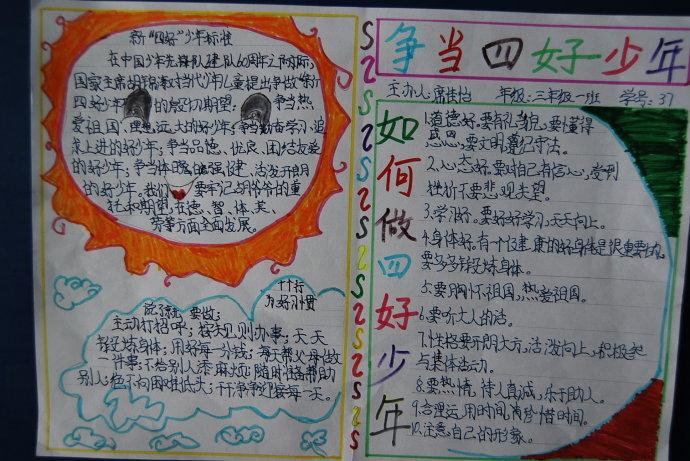 新“四好”少年标准
在中国少年先锋队建队60周年之际,
国家主席胡锦涛对当代少年儿童提出争做
四好少年的殷切期望: 争当热
爱祖国、理想远大的好少年;争当勤奋学习、追
求上进的好少年;争当品德优良、团结友爱
的好少年;争当体魄强健、活泼开朗
的好少年。我们要牢记胡爷爷的重
托和期望,在德、智、体、美、
劳等方面全面发展。
个个行
为好习惯
说了就要做;
主动打招呼;按规则办事;天天
锻炼身体;用好每一分钱;每天帮父母做
件事;不给别人添麻烦;随时准备帮助
别人;绝不向困难低头;干干净净迎接每一天。
S2S2S2S2S2S2S
争当四好少年
主办人:席佳怡 年级:三年级一班 学号:37
如何做四好少年
1.道德好。要有礼貌,要懂得
感恩,要文明遵纪守法。
2.心态好。要对自己有信心,受到
挫折不要悲观失望。
3.学习好。要好好学习,天天向上。
4.身体好。有一个健康的好身体是很重要的。
要多多锻炼身体。
5.要胸怀祖国,热爱祖国。
6.要听大人的话。
7.性格要开朗大方,活泼向上,积极参
与集体活动。
8.要热情,待人真诚,乐于助人。
9.合理运用时间,海珍惜时间。
10.注意自己的形象。